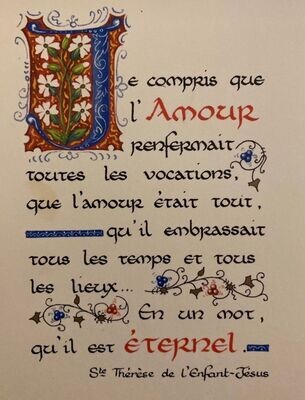 Je compris que
l'AMOUR
renfermait
toutes les vocations,
que l'amour était tout,
qu'il embrassait
tous les temps et tous
les lieux...
En un mot,
qu'il est ÉTERNEL.
Ste Thérèse de l'Enfant-Jésus